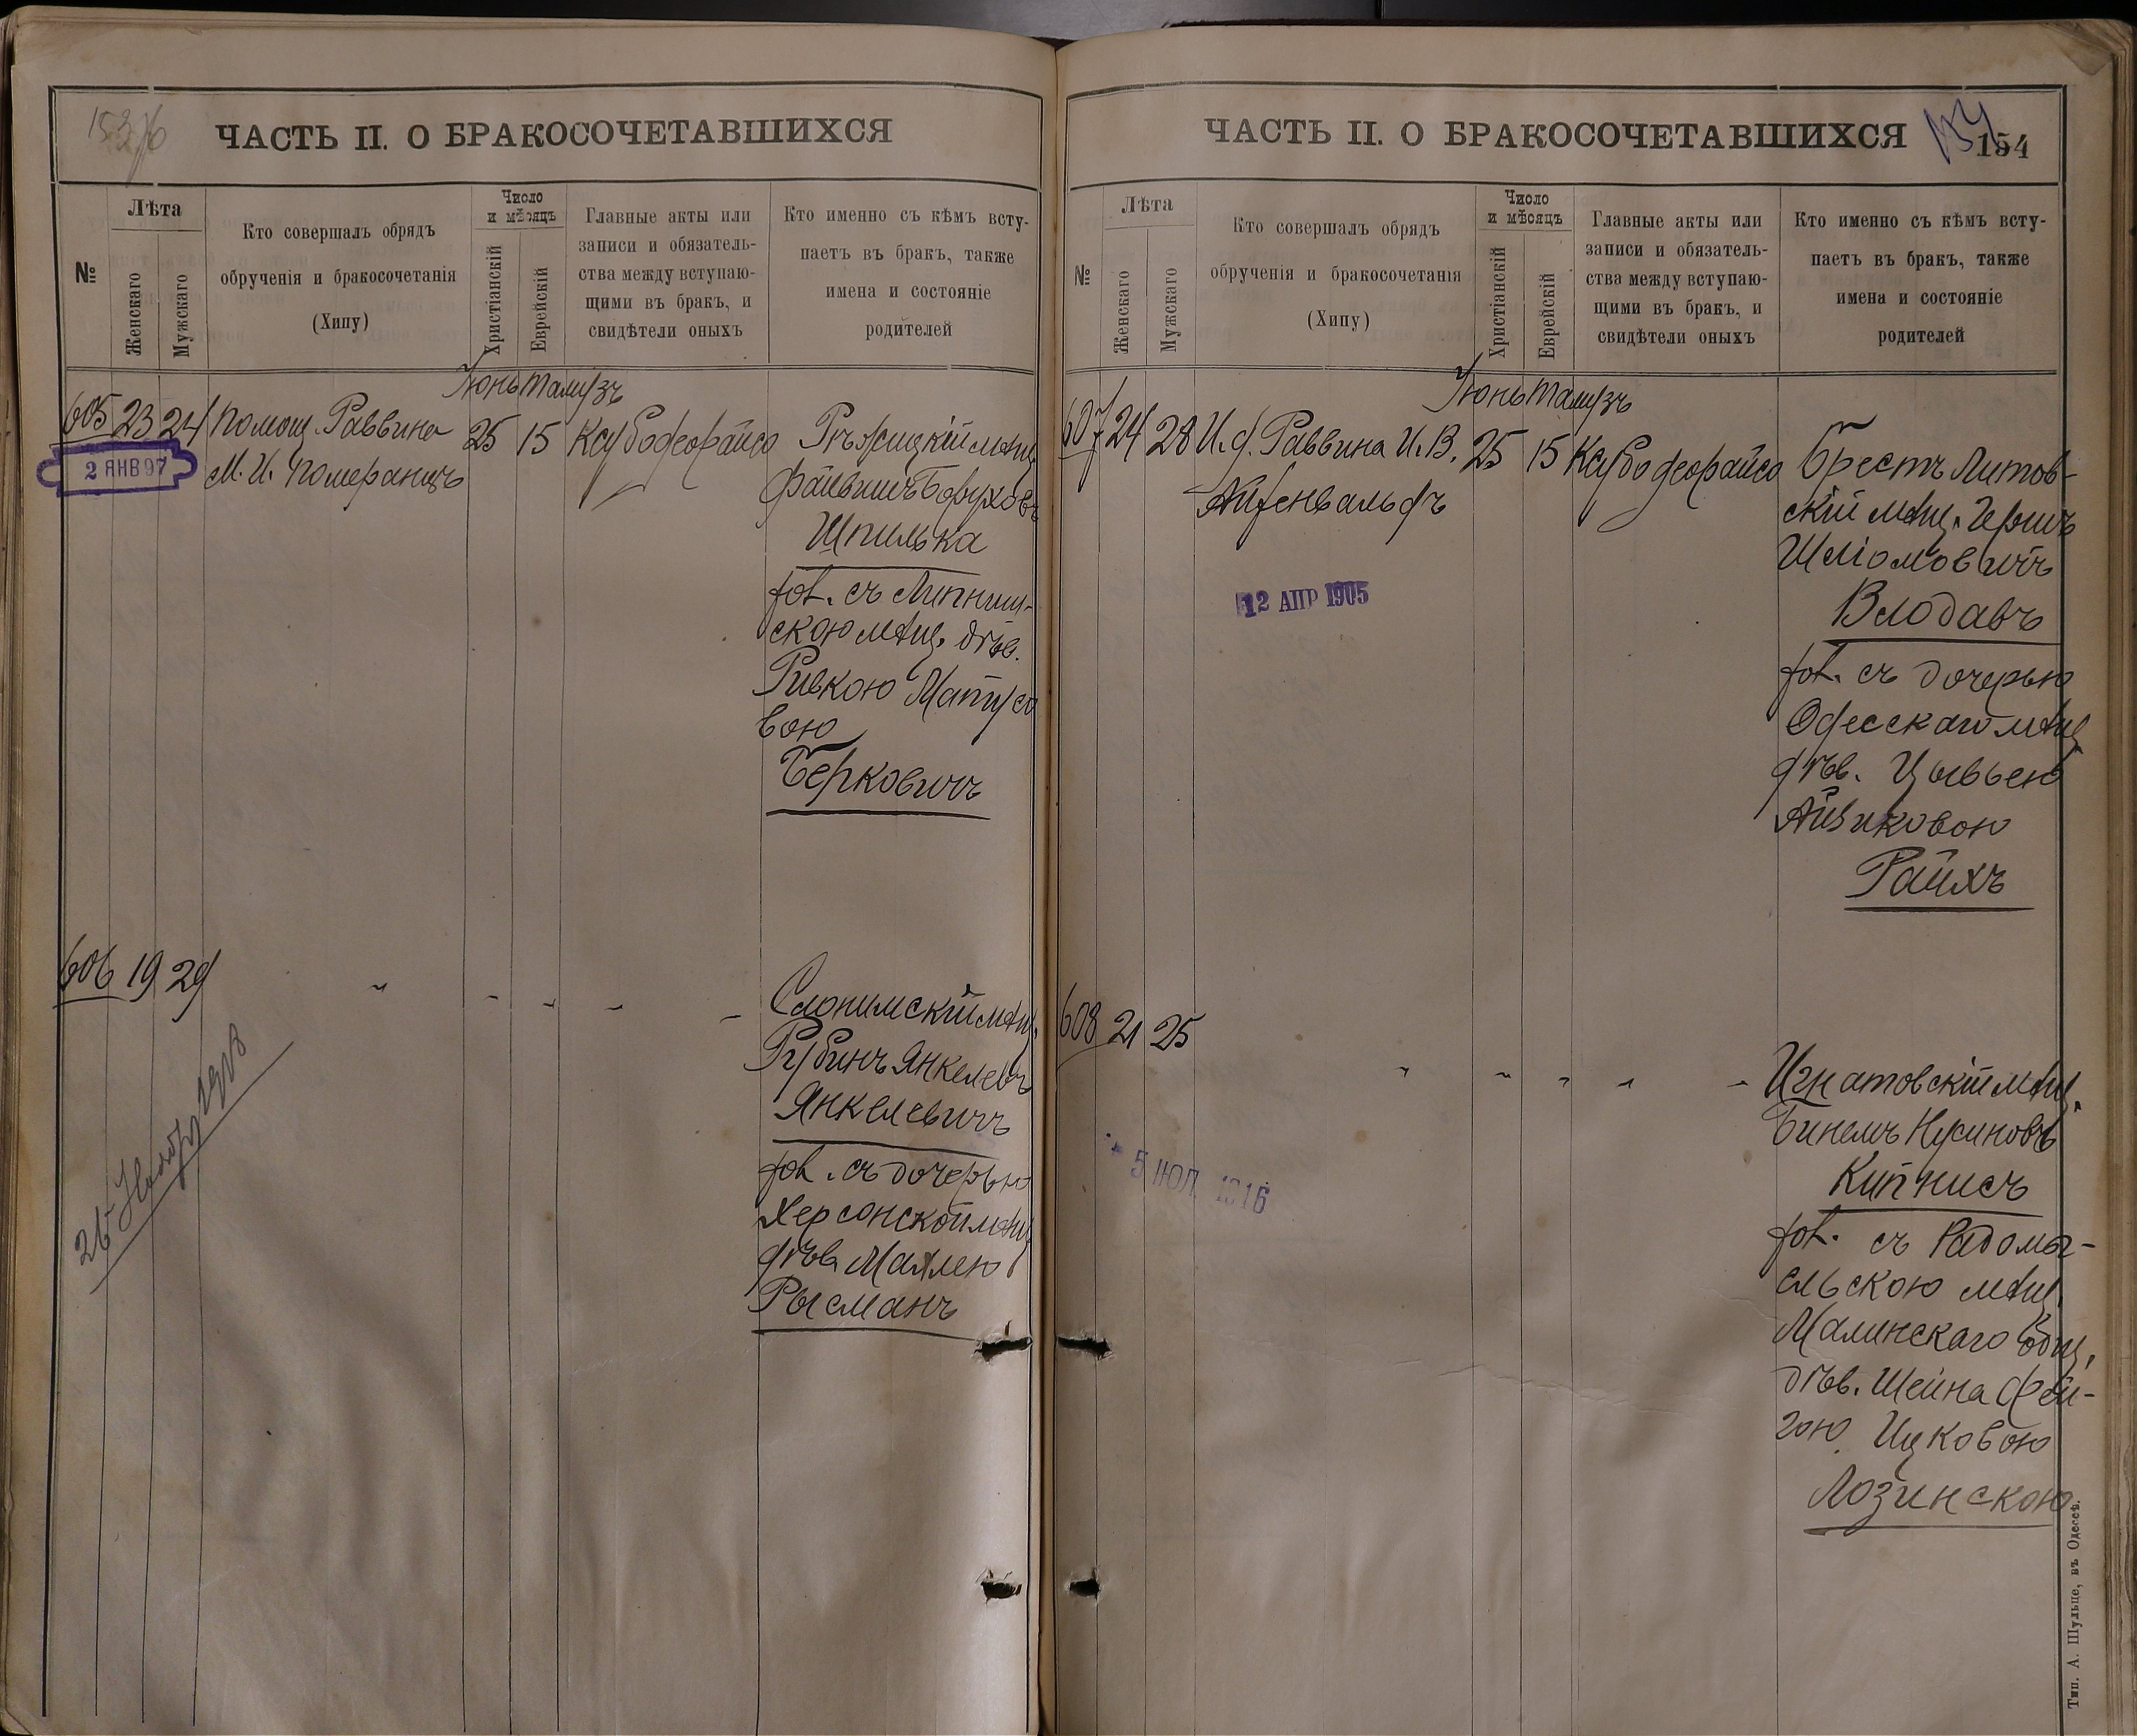 ЧАСТЬ II. О БРАКОСОЧЕТАВШИХСЯ
№
Лѣта
Женскаго
Мужскаго
Кто совершалъ обрядъ
обрученія и бракосочетанія
(Хипу)
Число
и мѣсяцъ
Христіанскій
Еврейскій
Главные акты или
записи и обязатель-
ства между вступаю-
щими въ бракъ, и
свидѣтели оныхъ
Кто именно съ кѣмъ всту-
паетъ въ бракъ, также
имена и состояніе
родителей
Іюнь Тамузъ
605 23 24 Помощ. Раввина 25 15
М. И. Померанцъ
2 ЯНВ 97
Рѣжицкій мѣщ.
Файвишъ Боруховъ
Шпилька
съ Липниш-
скою мѣщ. дѣв.
Ривкою Матусо
вою
Берковичъ
606 19 29 " - - - -
Слонимскій мѣщ.
Рубинъ Янкелевъ
Янкелевичъ
съ дочерью
Херсонской мѣщ.
дѣв. Маллею
Рысманъ
ЧАСТЬ II. О БРАКОСОЧЕТАВШИХСЯ
154
№
Лѣта
Женскаго
Мужскаго
Кто совершалъ обрядъ
обрученія и бракосочетанія
(Хипу)
Число
и мѣсяцъ
Христіанскій
Еврейскій
Главные акты или
записи и обязатель-
ства между вступаю-
щими въ бракъ, и
свидѣтели оныхъ
Кто именно съ кѣмъ всту-
паетъ въ бракъ, также
имена и состояніе
родителей
Іюнь Тамузъ
607 24 28 И. д. Раввина И. В. 25 15
Айзенвальдъ
12 АПР 1905
Брестъ Литов-
скій мѣщ. Гершъ
Шліомовичъ
Влодавъ
съ дочерью
Одесскаго мѣщ
дѣв. Цывьею
Айзиковою
Райхъ
608 21 25 " - - - -
5 ИЮЛ 1916
Игнатовскій мѣщ.
Бинемъ Нусиновъ
Кипнисъ
съ Радомы-
сльскою мѣщ.
Малинскаго общ.
дѣв. Шейна Фей-
гою Ицковою
Лозинскою
Тип. А. Шульце, въ Одессѣ.